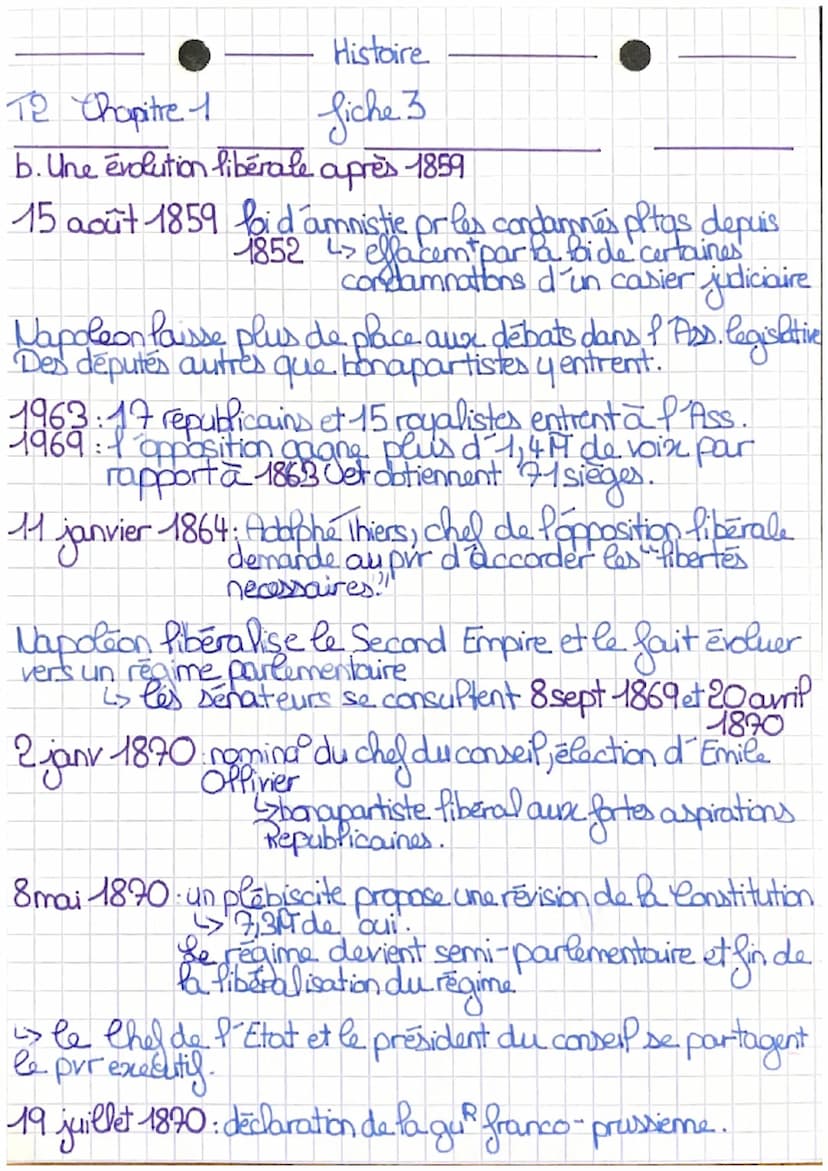 Histoire
T2 Chapitre 1 fiche 3
b. Une évolution libérale après 1859
15 août 1859 loi d'amnistie pr les condamnés pltqs depuis
1852 ↳ effacemt par la loi de certaines
condamnations d'un casier judiciaire
Napoleon laisse plus de place aux débats dans l'Ass. legislative
Des députés autres que bonapartistes y entrent.
1963 : 17 républicains et 15 royalistes entrent à l'Ass.
1969 : l'opposition gagne plus d'1,4M de voix par
rapport à 1863 et obtiennent 71 sièges.
11 janvier 1864 : Adolphe Thiers, chef de l'opposition libérale
demande au pvr d'accorder les "libertés
necessaires."
Napoléon libéralise le Second Empire et le fait évoluer
vers un régime parlementaire
↳ les sénateurs se consultent 8 sept 1869 et 20 avril
1870
2 janv 1870 : nominao du chef du conseil, élection d'Emile
Ollivier
↳ bonapartiste libéral aux fortes aspirations
Republicaines.
8 mai 1870 : un plébiscite propose une révision de la Constitution
↳ 7,3M de oui.
Le régime devient semi-parlementaire et fin de
la libéralisation du régime
↳ le Chef de l'Etat et le président du conseil se partagent
le pvr executif.
19 juillet 1870 : déclaration de la guR franco-prussienne.